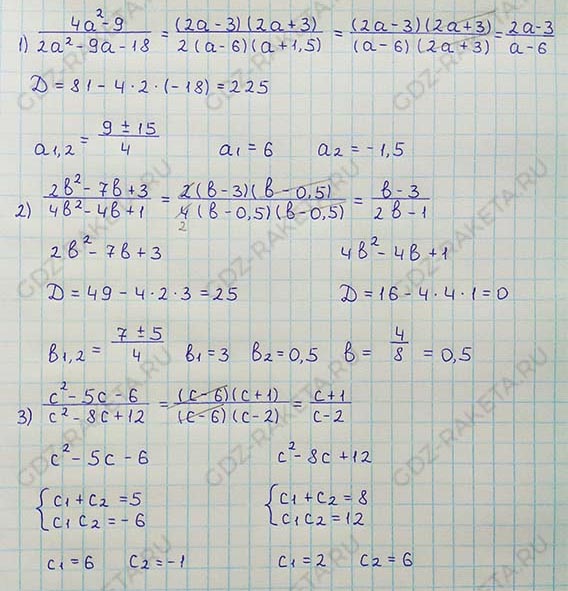 1) (4a²-9)/(2a²-9a-18) = ((2a-3)(2a+3))/(2(a-6)(a+1,5)) = ((2a-3)(2a+3))/((a-6)(2a+3)) = (2a-3)/(a-6)
D = 81-4·2·(-18) = 225
a₁,₂ = (9 ± 15)/4   a₁ = 6   a₂ = -1,5
2) (2в²-7в+3)/(4в²-4в+1) = (2(в-3)(в-0,5))/(4(в-0,5)(в-0,5)) = (в-3)/(2в-1)
2
2в²-7в+3   4в²-4в+1
D = 49-4·2·3 = 25   D = 16-4·4·1 = 0
в₁,₂ = (7 ± 5)/4   в₁ = 3   в₂ = 0,5   в = 4/8 = 0,5
3) (c²-5c-6)/(c²-8c+12) = ((c-6)(c+1))/((c-6)(c-2)) = (c+1)/(c-2)
c²-5c-6   c²-8c+12
{ c₁+c₂ = 5   { c₁+c₂ = 8
c₁c₂ = -6   c₁c₂ = 12
c₁ = 6   c₂ = -1   c₁ = 2   c₂ = 6
GDZ-RAKETA.RU